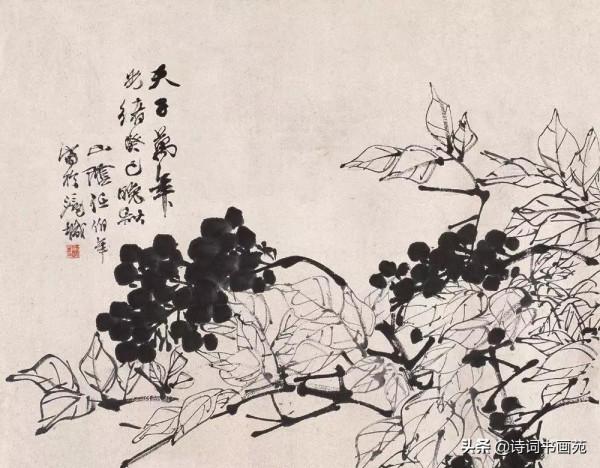 天子萬年
光緒癸巳晚秋
山陰任伯年
寫於滬城
头条 @诗词书画苑